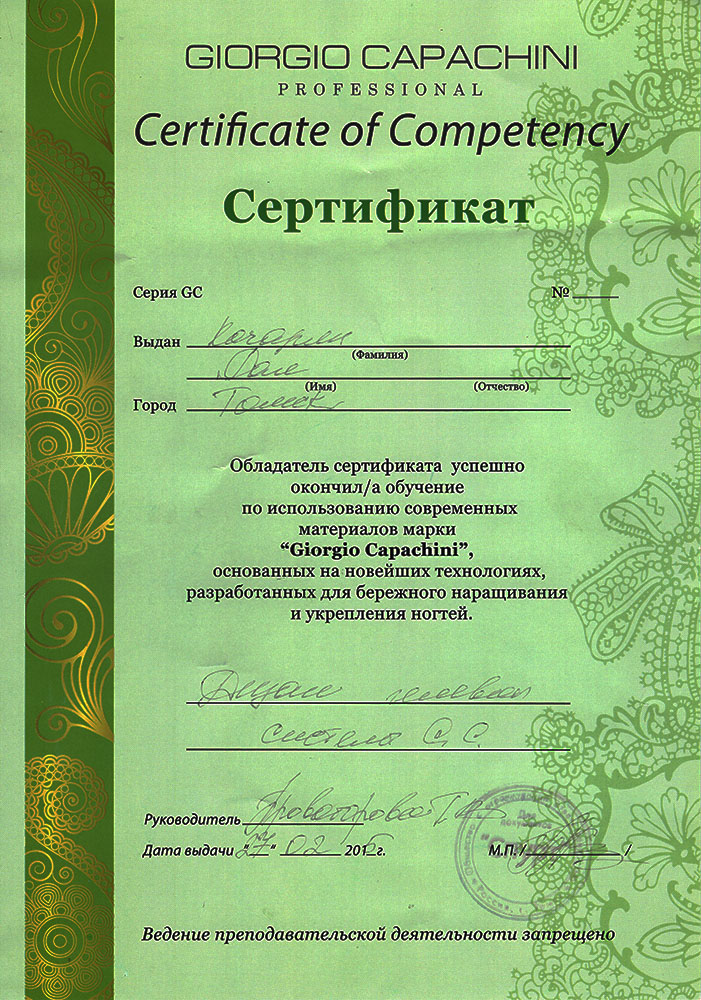 GIORGIO CAPACHINI
PROFESSIONAL
Certificate of Competency
Сертификат
Серия GC №
Выдан
(Фамилия)
(Имя) (Отчество)
Город Томск
Обладатель сертификата успешно
окончил/а обучение
по использованию современных
материалов марки
“Giorgio Capachini”,
основанных на новейших технологиях,
разработанных для бережного наращивания
и укрепления ногтей.
гелевая
система
Руководитель
Дата выдачи "27" 02 201 г. М.П. / /
Ведение преподавательской деятельности запрещено